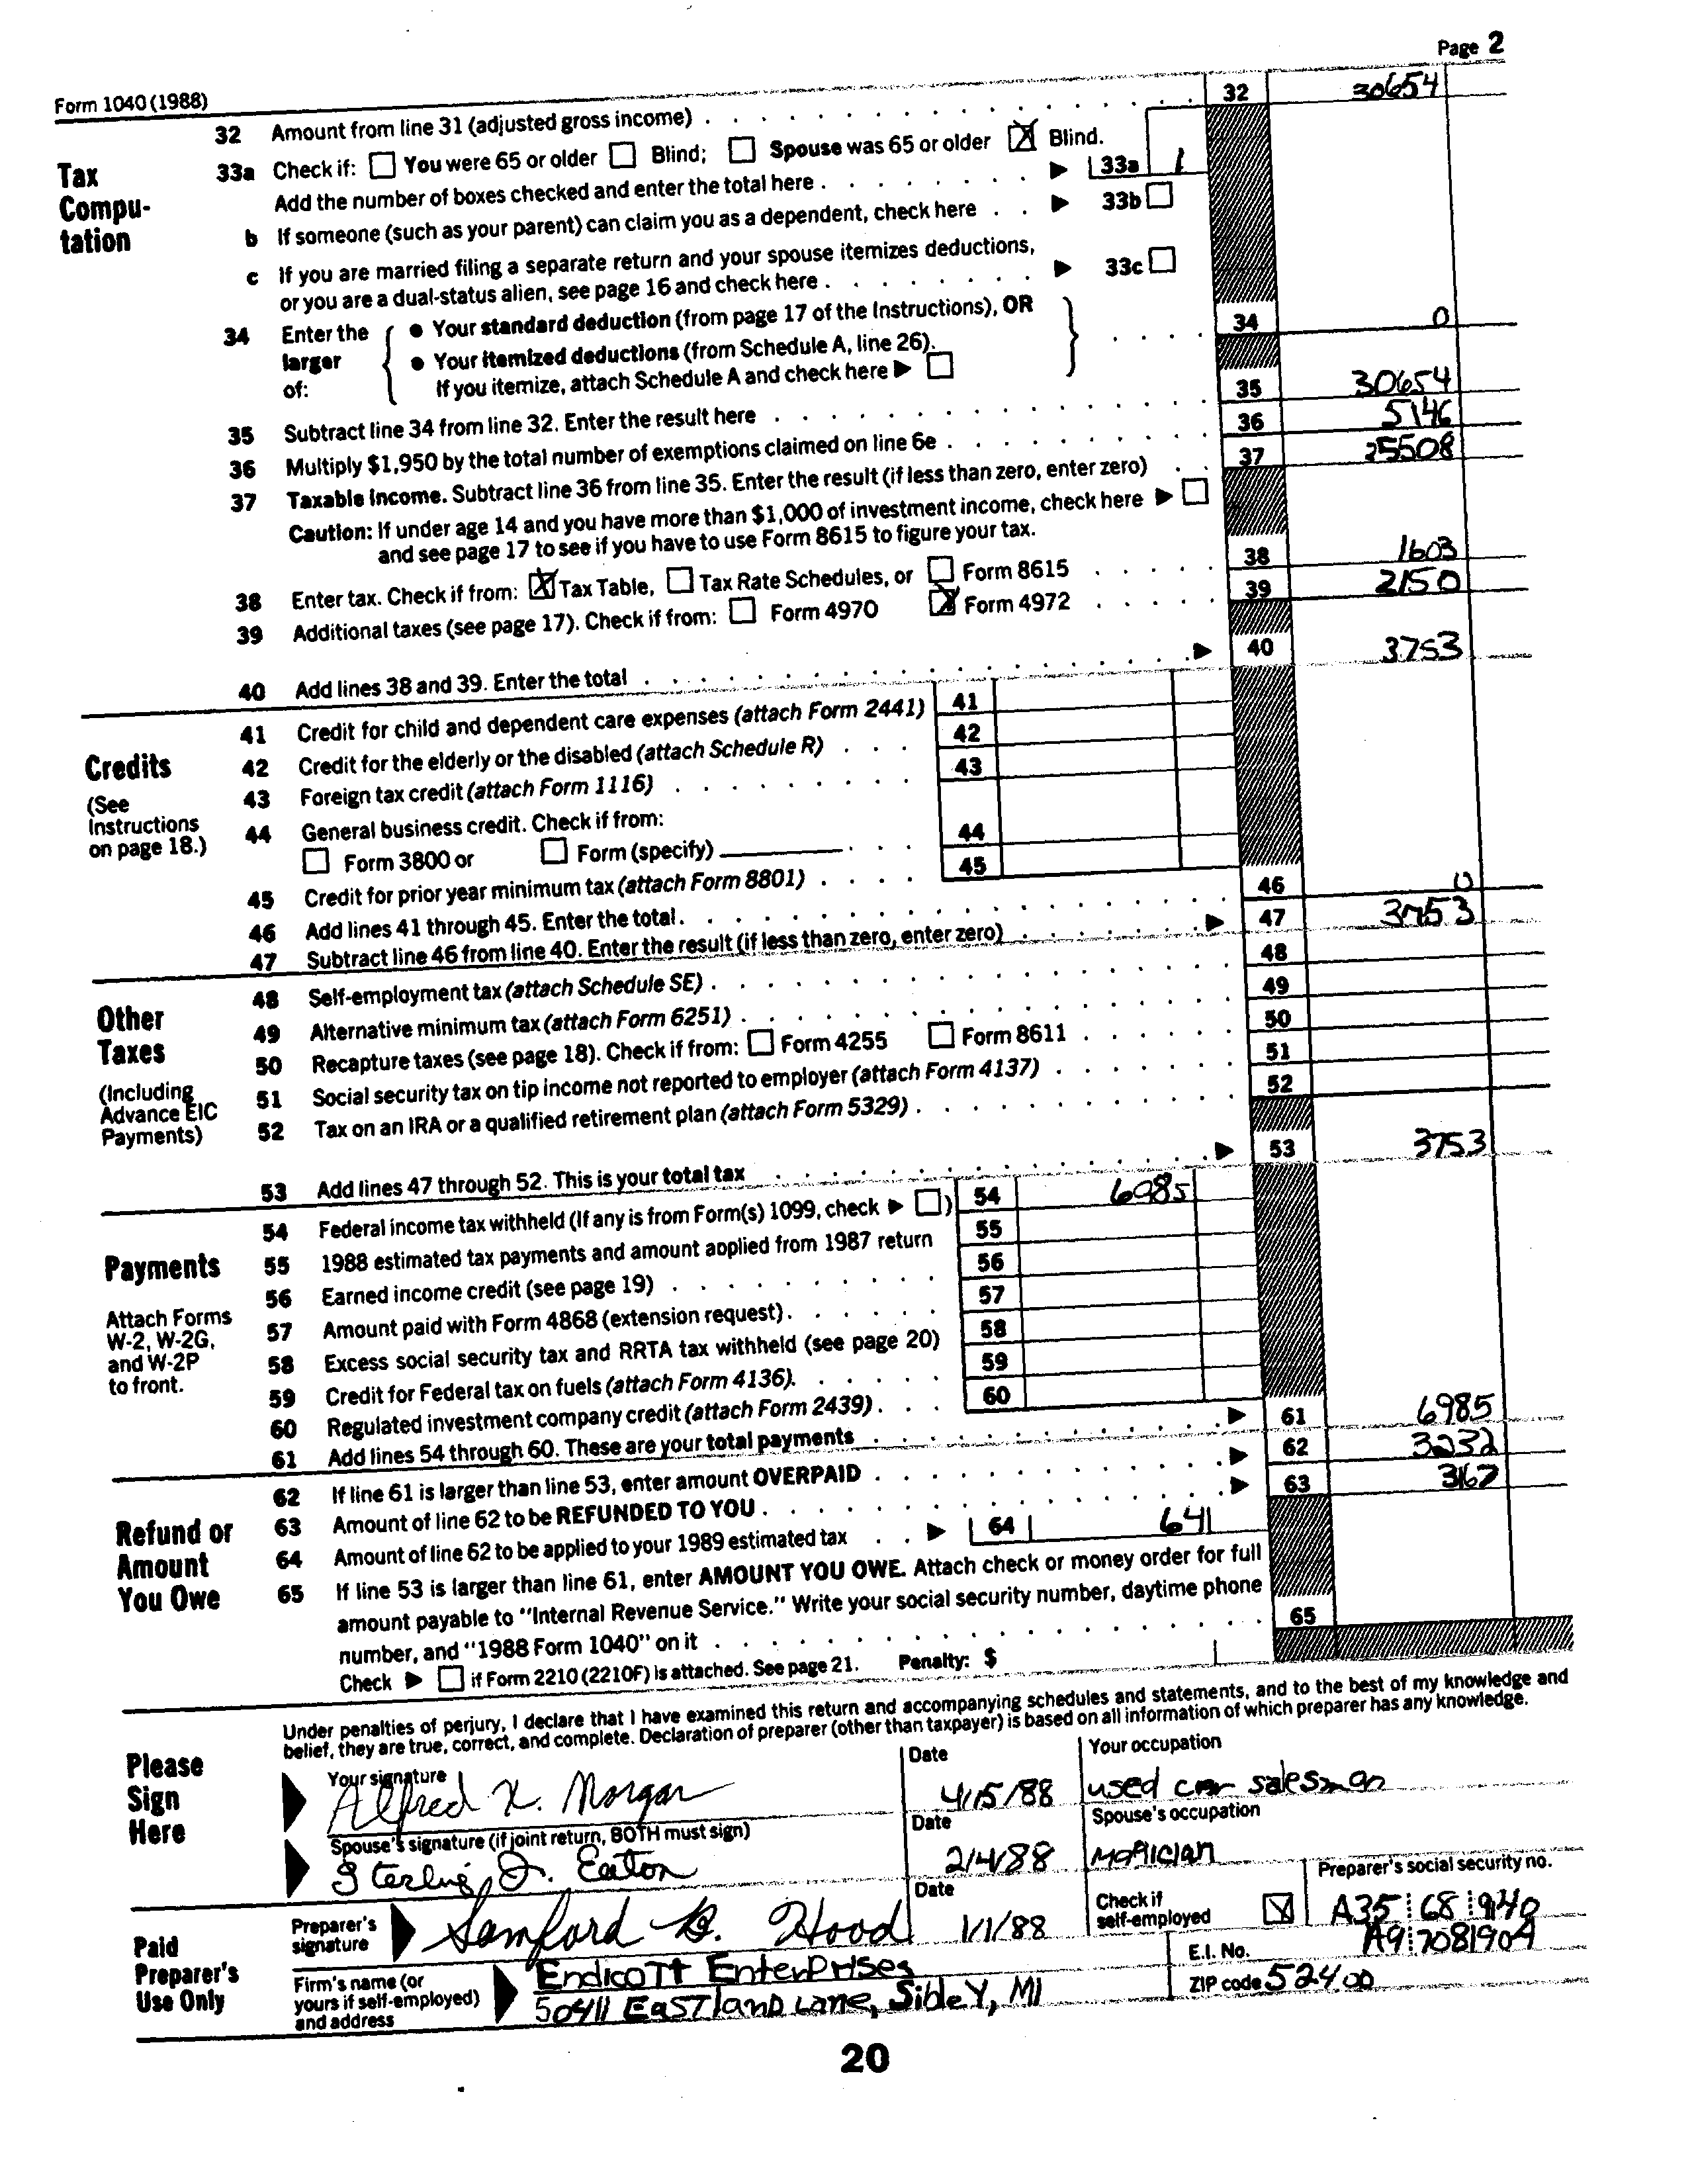 Page 2
Form 1040 (1988)
32 Amount from line 31 (adjusted gross income) . . . . . . . . . . . 32 30654
Tax Compu-tation
33a Check if: ☐ You were 65 or older ☐ Blind; ☐ Spouse was 65 or older ☒ Blind.
Add the number of boxes checked and enter the total here . . . . . . . ▶ 33a 1
b If someone (such as your parent) can claim you as a dependent, check here . . ▶ 33b ☐
c If you are married filing a separate return and your spouse itemizes deductions,
or you are a dual-status alien, see page 16 and check here . . . . . . . ▶ 33c ☐
34 Enter the larger of: { • Your standard deduction (from page 17 of the Instructions), OR
• Your itemized deductions (from Schedule A, line 26).
If you itemize, attach Schedule A and check here ▶ ☐ } . . . . 34 0
35 Subtract line 34 from line 32. Enter the result here . . . . . . . . . . 35 30654
36 Multiply $1,950 by the total number of exemptions claimed on line 6e . . . . . . . . 36 5146
37 Taxable income. Subtract line 36 from line 35. Enter the result (if less than zero, enter zero) . . 37 25508
Caution: If under age 14 and you have more than $1,000 of investment income, check here ▶ ☐
and see page 17 to see if you have to use Form 8615 to figure your tax.
38 Enter tax. Check if from: ☒ Tax Table, ☐ Tax Rate Schedules, or ☐ Form 8615 . . . . . 38 1603
39 Additional taxes (see page 17). Check if from: ☐ Form 4970 ☒ Form 4972 . . . . . 39 2150
40 Add lines 38 and 39. Enter the total . . . . . . . . . . . . ▶ 40 3753
Credits
(See Instructions on page 18.)
41 Credit for child and dependent care expenses (attach Form 2441) 41
42 Credit for the elderly or the disabled (attach Schedule R) . . . 42
43 Foreign tax credit (attach Form 1116) . . . . . . . . 43
44 General business credit. Check if from:
☐ Form 3800 or ☐ Form (specify) . . . 44
45 Credit for prior year minimum tax (attach Form 8801) . . . . 45
46 Add lines 41 through 45. Enter the total . . . . . . . . . . . . 46 0
47 Subtract line 46 from line 40. Enter the result (if less than zero, enter zero) . . . . . . ▶ 47 3753
Other Taxes
(Including Advance EIC Payments)
48 Self-employment tax (attach Schedule SE) . . . . . . . . . . . 48
49 Alternative minimum tax (attach Form 6251) . . . . . . . . . . . 49
50 Recapture taxes (see page 18). Check if from: ☐ Form 4255 ☐ Form 8611 . . . . . 50
51 Social security tax on tip income not reported to employer (attach Form 4137) . . . . . . 51
52 Tax on an IRA or a qualified retirement plan (attach Form 5329) . . . . . . . . . 52
53 Add lines 47 through 52. This is your total tax . . . . . . . . . . ▶ 53 3753
Payments
Attach Forms W-2, W-2G, and W-2P to front.
54 Federal income tax withheld (If any is from Form(s) 1099, check ▶ ☐) 54 6985
55 1988 estimated tax payments and amount applied from 1987 return 55
56 Earned income credit (see page 19) . . . . . . . . 56
57 Amount paid with Form 4868 (extension request) . . . . . 57
58 Excess social security tax and RRTA tax withheld (see page 20) 58
59 Credit for Federal tax on fuels (attach Form 4136). . . . . 59
60 Regulated investment company credit (attach Form 2439) . . . 60
61 Add lines 54 through 60. These are your total payments . . . . . . . . ▶ 61 6985
Refund or Amount You Owe
62 If line 61 is larger than line 53, enter amount OVERPAID . . . . . . . . ▶ 62 3232
63 Amount of line 62 to be REFUNDED TO YOU . . . . . . . . . . ▶ 63 3167
64 Amount of line 62 to be applied to your 1989 estimated tax . . ▶ 64 641
65 If line 53 is larger than line 61, enter AMOUNT YOU OWE. Attach check or money order for full
amount payable to "Internal Revenue Service." Write your social security number, daytime phone
number, and "1988 Form 1040" on it . . . . . . . . . . . . 65
Check ▶ ☐ if Form 2210 (2210F) is attached. See page 21. Penalty: $
Please Sign Here
Under penalties of perjury, I declare that I have examined this return and accompanying schedules and statements, and to the best of my knowledge and
belief, they are true, correct, and complete. Declaration of preparer (other than taxpayer) is based on all information of which preparer has any knowledge.
Your signature Date Your occupation
Alfred X. Morgan 4/15/88 used car salesman
Spouse's signature (if joint return, BOTH must sign) Date Spouse's occupation
Sterling J. Eaton 2/4/88 Magician
Paid Preparer's Use Only
Preparer's signature Date Check if self-employed ☒ Preparer's social security no.
Samford B. Hood 1/1/88 A35 68 9140
Firm's name (or yours if self-employed) and address
Endicott Enterprises E.I. No. A9 7081904
50411 Eastland Lane, Sibley, MI ZIP code 52400
20